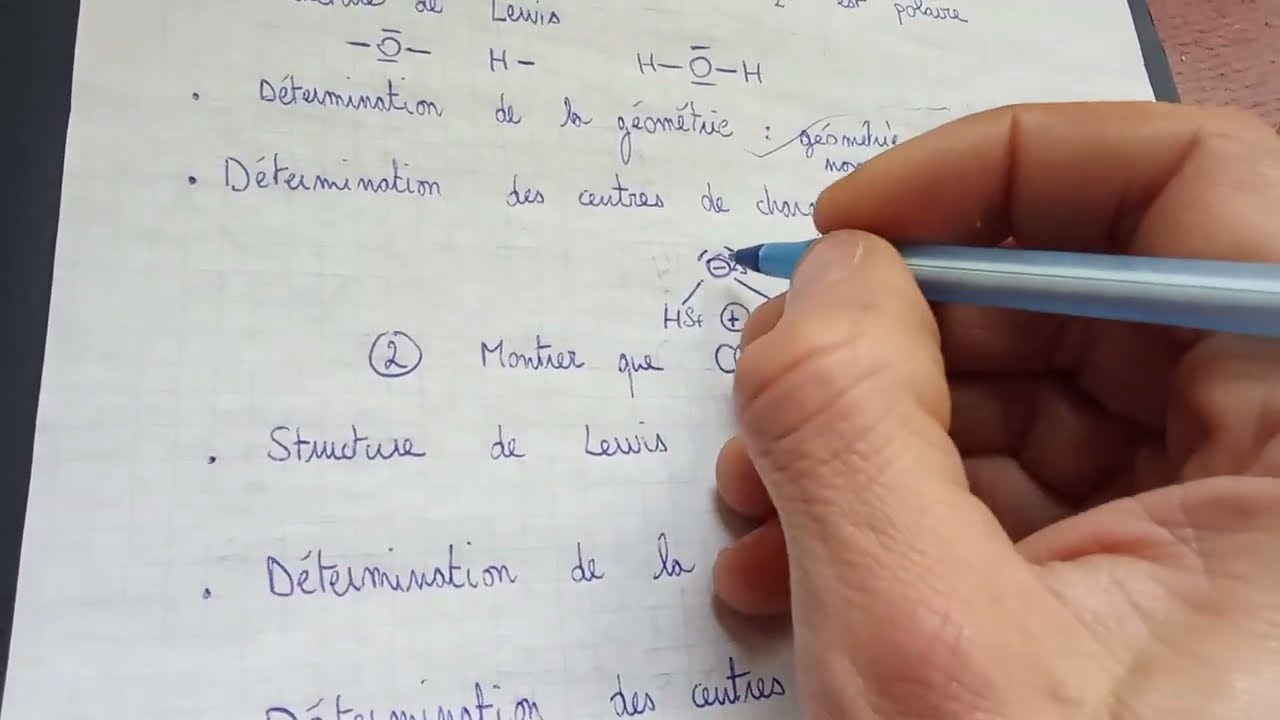 de Lewis est polaire
– O – H – H – O – H
. Détermination de la géométrie : géométrie
. Détermination des centres de
H + 
② Montrer que
. Structure de Lewis
. Détermination de la
Détermination des centres